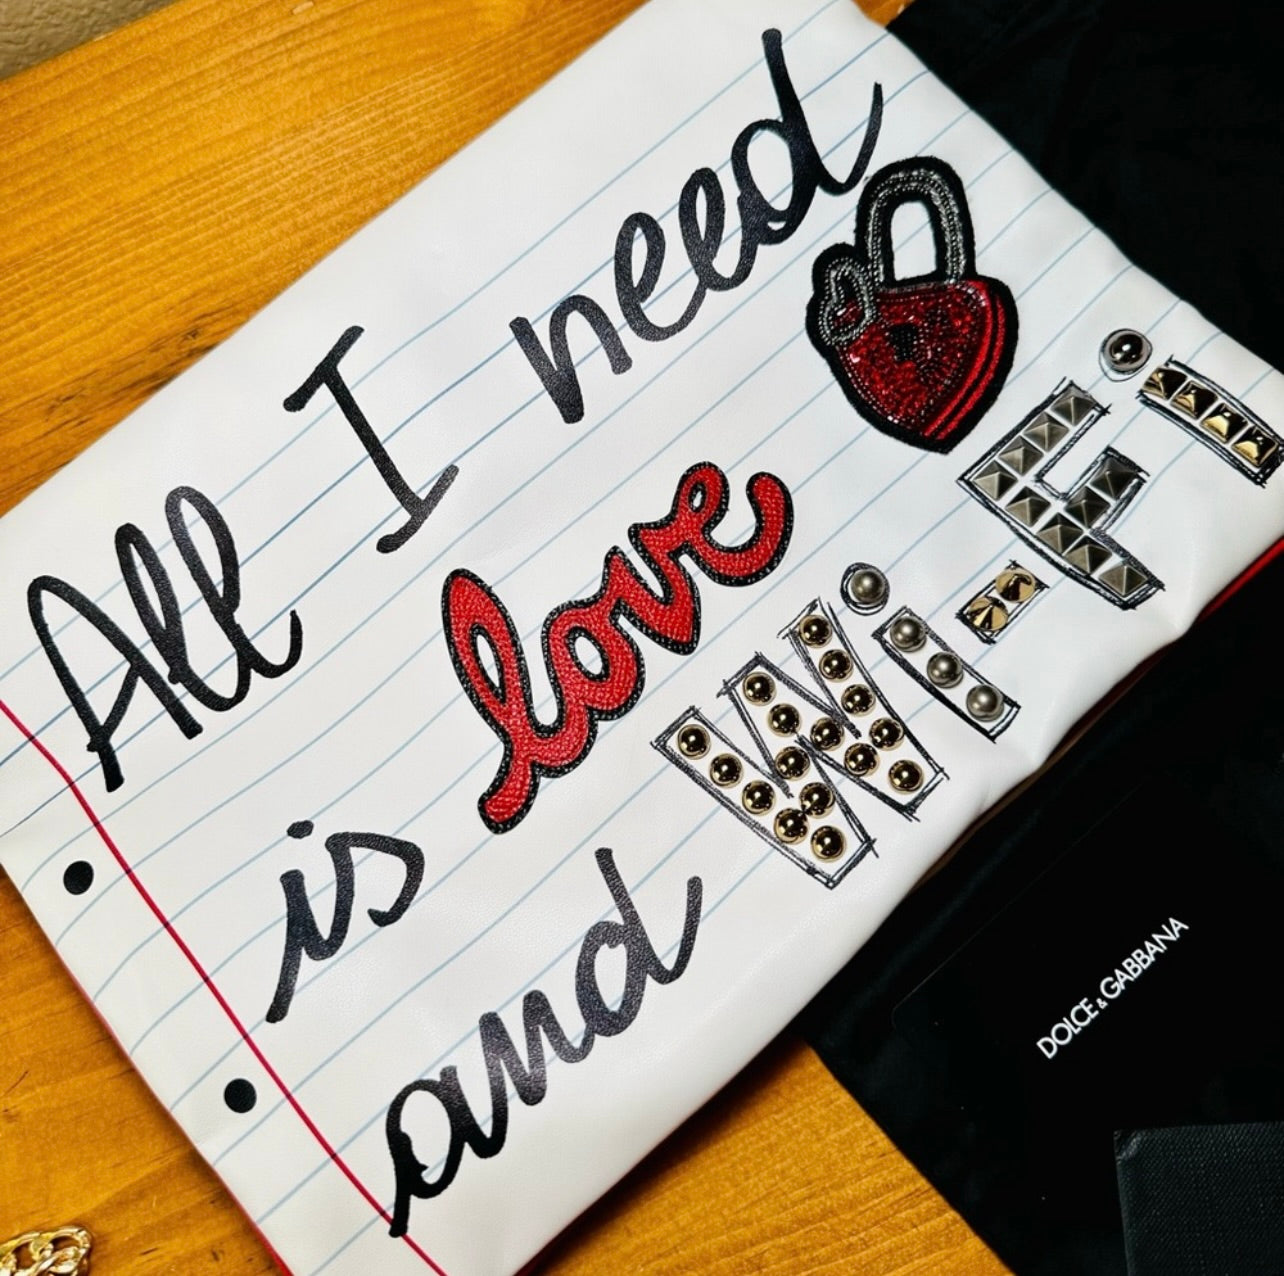 All I need
is love
and Wi-Fi
DOLCE & GABBANA